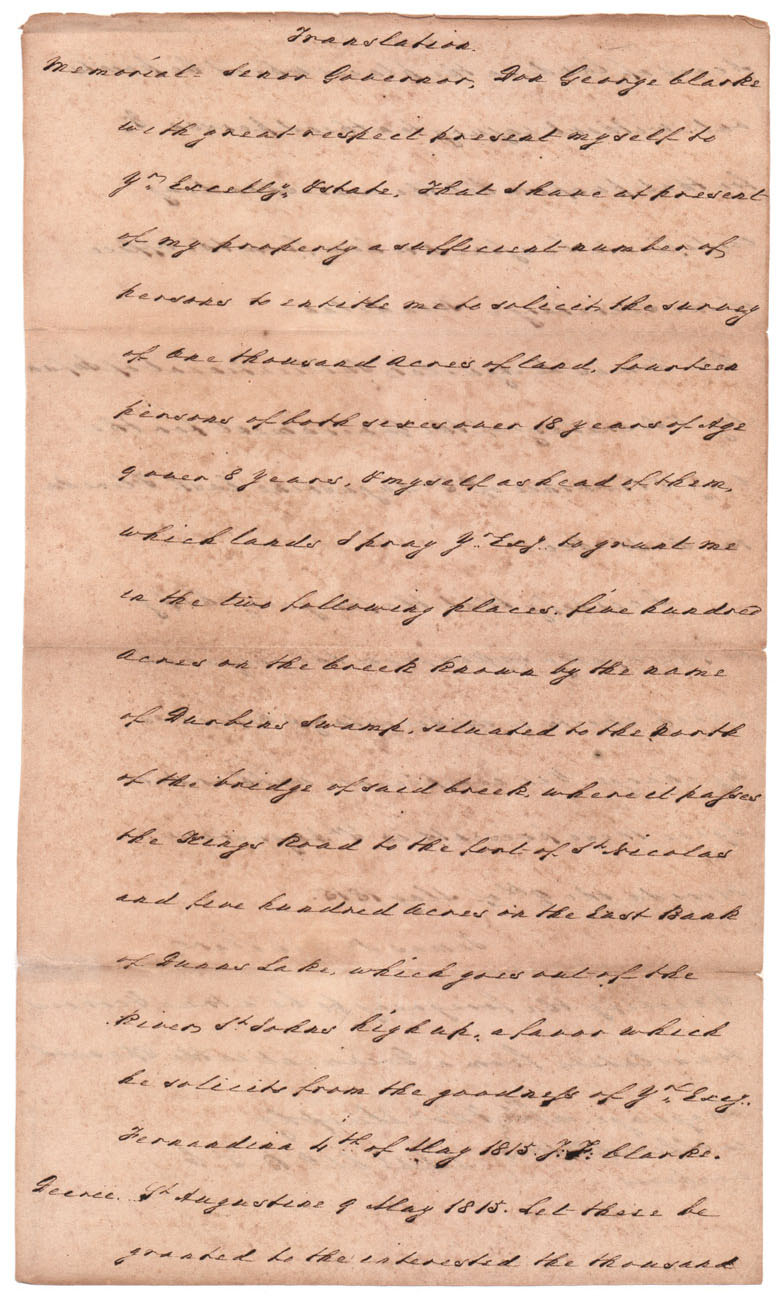 Translation.
Memorial - Senor Governor, Don George Clarke
with great respect present myself to
Yr. Excelly. & state. That I have at present
of my property a sufficient number of
persons to entitle me to solicit the survey
of One thousand Acres of land, fourteen
persons of both sexes over 18 years of Age
9 over 8 years, & myself as head of them,
which lands I pray Yr. Exy. to grant me
in the two following places. five hundred
Acres on the Creek known by the name
of Durbins Swamp, situated to the North
of the bridge of said Creek, where it passes
the Kings Road to the fort of St. Nicolas
and five hundred Acres on the East Bank
of Dunns Lake, which goes out of the
River St. Johns high up, a favor which
he solicits from the goodness of Yr. Excy.
Fernandina 4th of May 1815. J. F. Clarke.
Decree. St. Augustine 9 May 1815. Let there be
granted to the interested the thousand